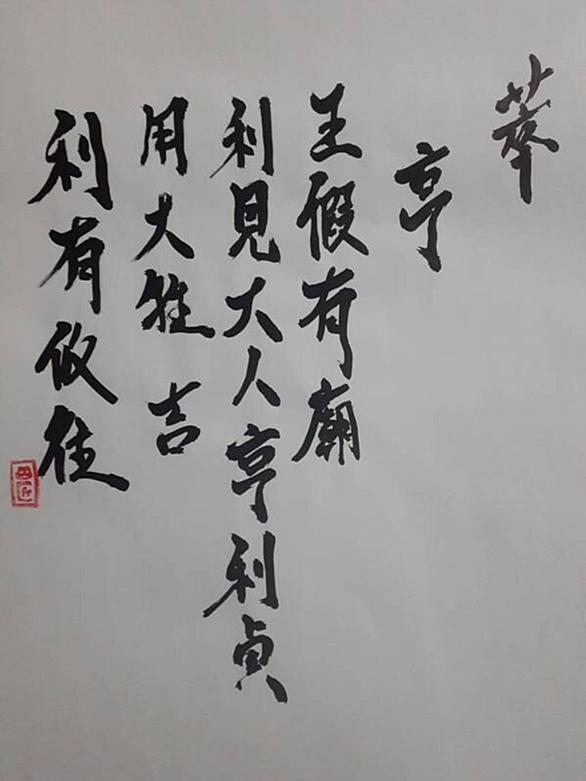 萃
亨
王假有廟
利見大人亨利貞
用大牲 吉
利有攸往